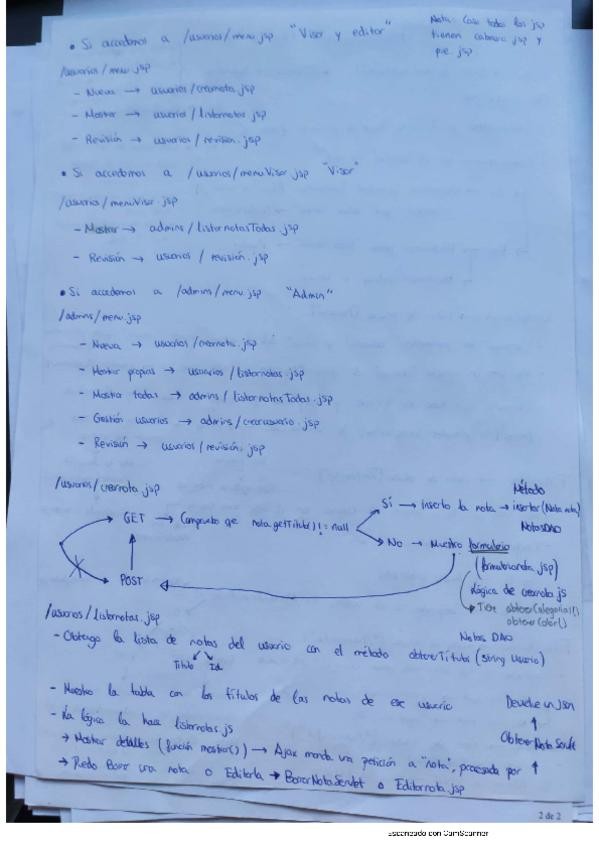 • Si accedemos a /usuarios/menu.jsp "Visor y editor"
Nota: Casi todos los jsp
tienen cabecera.jsp y
pie.jsp
/usuarios/menu.jsp
- Nueva → usuarios/crearnota.jsp
- Mostrar → usuarios/listarnotas.jsp
- Revisión → usuarios/revision.jsp
• Si accedemos a /usuarios/menuVisor.jsp "Visor"
/usuarios/menuVisor.jsp
- Mostrar → admins/listarnotasTodas.jsp
- Revisión → usuarios/revisión.jsp
• Si accedemos a /admins/menu.jsp "Admin"
/admins/menu.jsp
- Nueva → usuarios/crearnota.jsp
- Mostrar propias → usuarios/listarnotas.jsp
- Mostrar todas → admins/listarnotasTodas.jsp
- Gestión usuarios → admins/crearusuario.jsp
- Revisión → usuarios/revisión.jsp
/usuarios/crearnota.jsp
Método
GET → Compruebo que nota.getTitulo() != null
Sí → Inserto la nota → insertar(Nota nota)
NotasDAO
No → Muestro formulario
(formularionota.jsp)
POST
Lógica de crearnota.js
→ Tiene obtenerCategorias()
obtenerColor()
/usuarios/listarnotas.jsp
Notas DAO
- Obtengo la lista de notas del usuario con el método obtenerTitulos(String usuario)
Titulo Id
- Muestro la tabla con los títulos de las notas de ese usuario
Devuelve un JSON
- La lógica la hace listarnotas.js
ObtenerNotaServlet
→ Mostrar detalles (función mostrar()) → Ajax manda una petición a "nota", procesada por
→ Puedo Borrar una nota o Editarla → BorrarNotaServlet o Editarnota.jsp
2 de 2
Escaneado con CamScanner